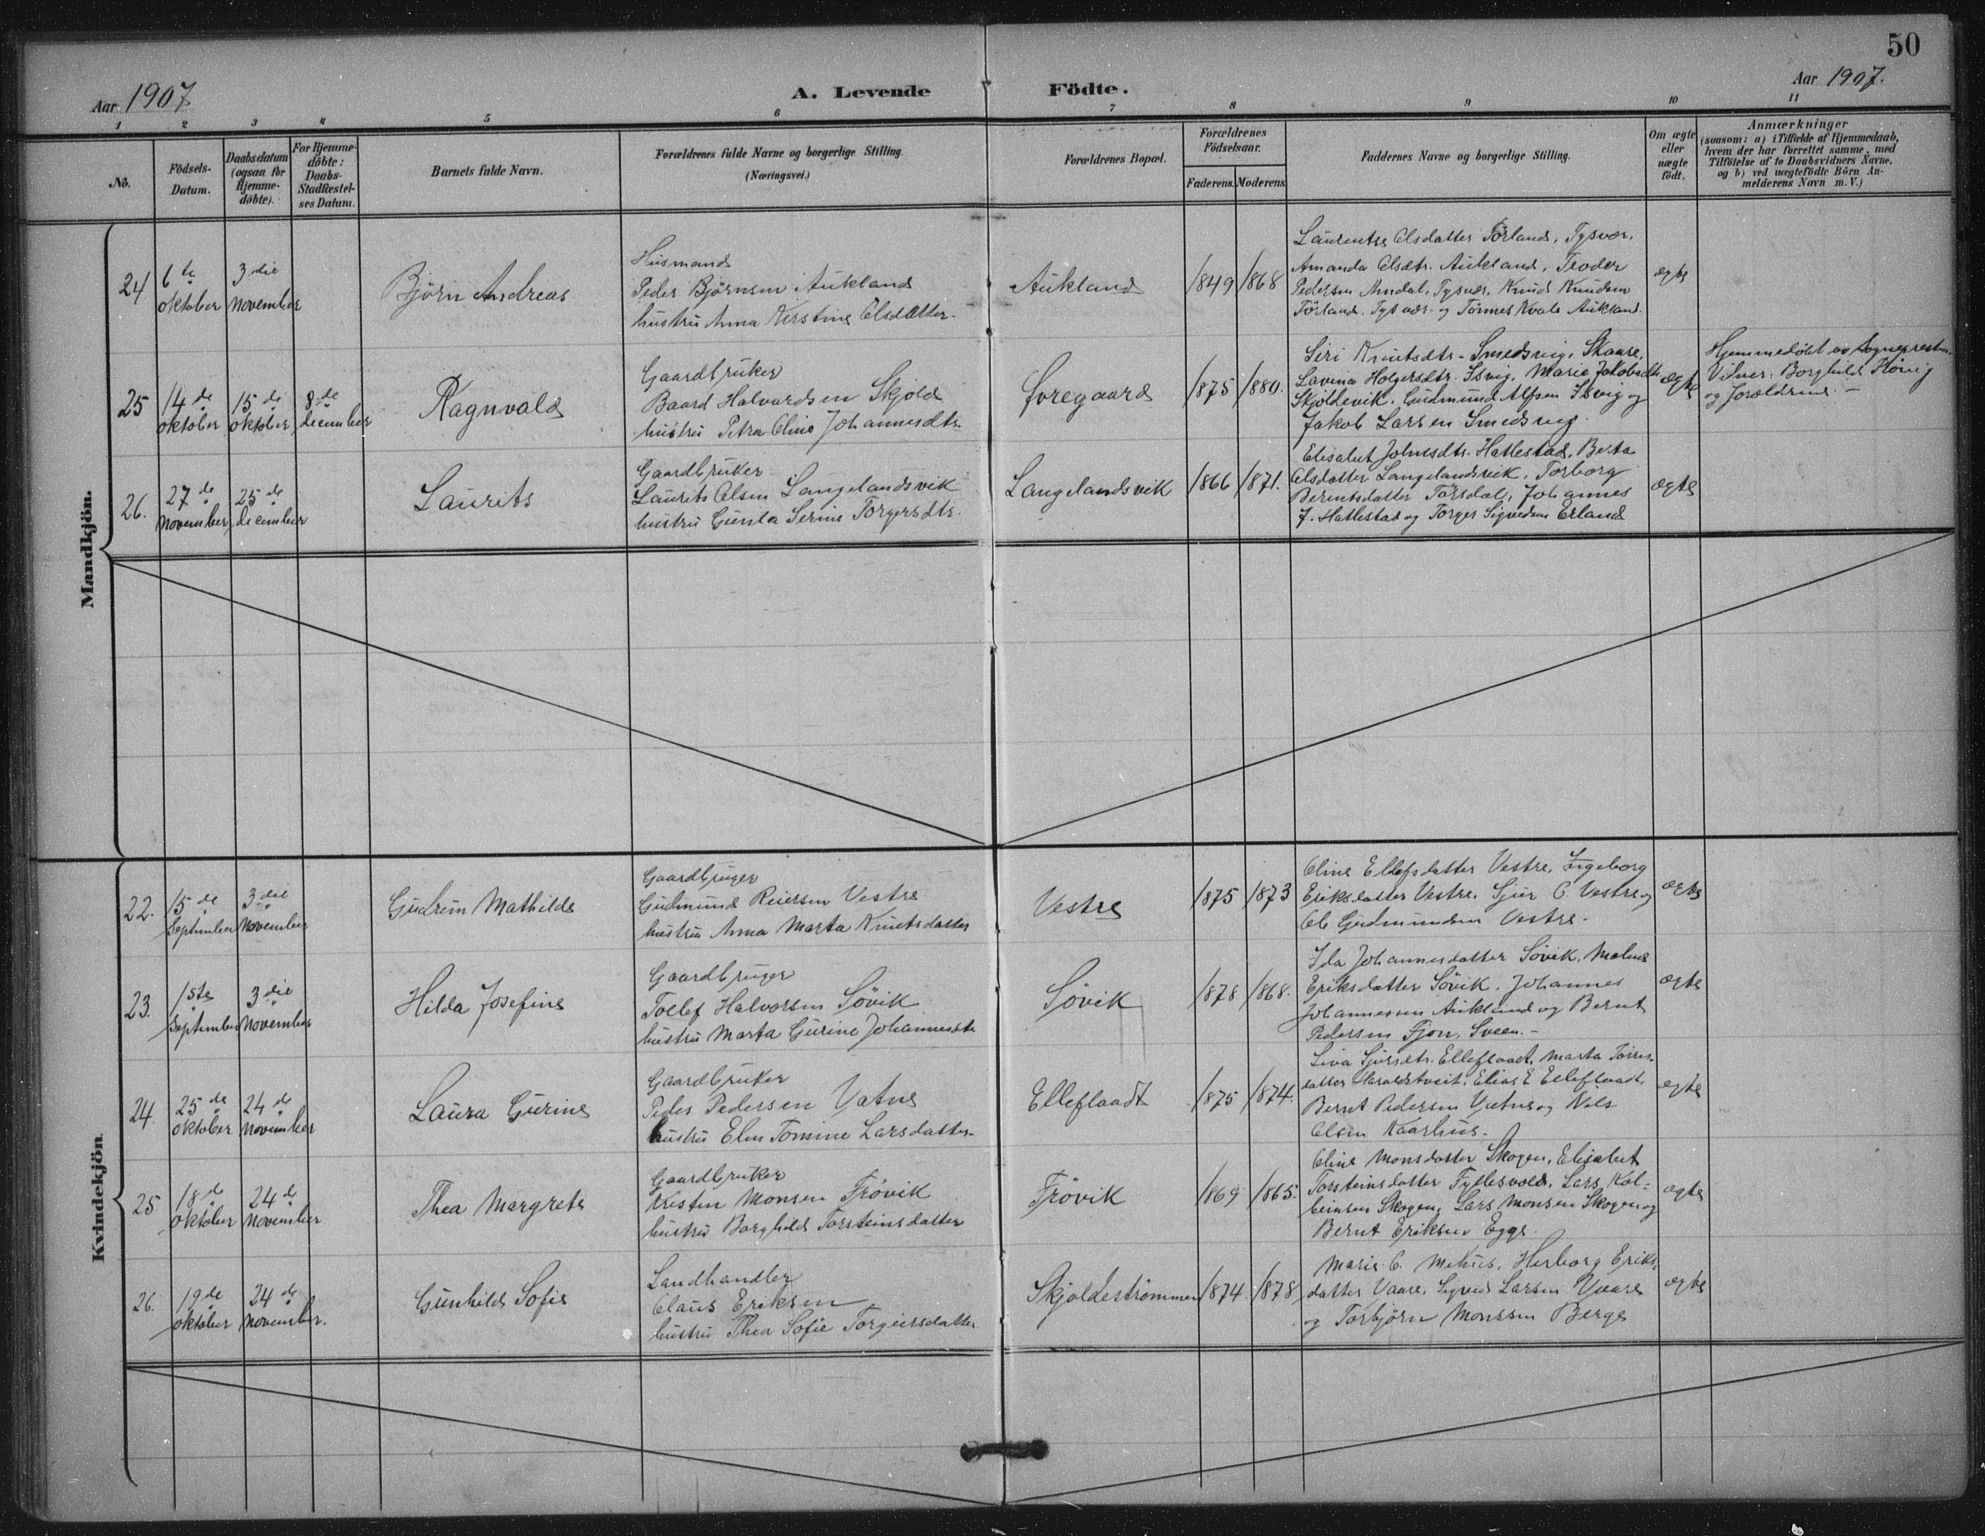 50
Aar 1907
A. Levende Födte.
Aar 1907.
1 2 3 4 5 6 7 8 9 10 11
No.
Födsels-
Datum.
Daabsdatum
(ogsaa for
Hjemme-
döbte).
For Hjemme-
döbte:
Daabs-
Stadfæstel-
ses Datum.
Barnets fulde Navn.
Forældrenes fulde Navne og borgerlige Stilling.
(Næringsvei.)
Forældrenes Bopæl.
Forældrenes
Födselsaar.
Faderens. Moderens.
Faddernes Navne og borgerlige Stilling.
Om ægte
eller
uægte
födt.
Anmærkninger
(saasom: a) i Tilfælde af Hjemmedaab,
hvem der har forrettet samme, med
Tilföielse af to Daabsvidners Navne.
og b) ved uægtefödte Börn An-
melderens Navn m. V.)
Mandkjön.
24
6te
oktober
3die
november
Bjørn Andreas
Husmand
Peder Bjørnsen Aukland
hustru Anna Kirstine Olsdatter.
Aukland
1849 1868
Laurentse Olsdatter Førland, Tysvær.
Amanda Olsdtr. Aukland, Teodor
Pedersen Amdal, Tysvær, Knud Knudsen
Førland, Tysvær og Tørres Kvale Aukland.
ægte
25
14de
oktober
15de
oktober
8de
december
Ragnvald
Gaardbruker
Baard Halvardsen Skjold
hustru Petra Oline Johannesdtr.
Øvregaard
1875 1880.
Siri Knutsdtr. Smedsvig, Skaare,
Lavina Holgersdtr. Isvig, Marie Jakobsdtr.
Skjoldevik, Gudmund Alfsen Isvig og
Jakob Larsen Smedsvig.
ægte
Hjemmedøbt av Sognepresten.
Vidner: Borghild König
og forældrene. -
26.
27de
november
25de
december
Laurits
Gaardbruker
Laurits Olsen Langelandsvik
hustru Gunla Serine Torgersdtr.
Langelandsvik
1866 1871.
Elisabet Johnsdtr. Hatlestad, Berta
Olsdatter Langelandsvik, Torborg
Berentsdatter Førsdal, Johannes
J. Hatlestad og Torger Sigvedsen Erland
ægte
Kvindekjön
22.
15de
September
3die
November
Gudrun Mathilde
Gaardbruger
Gudmund Reiersen Vestre
hustru Anna Marta Knutsdatter
Vestre
1875 1873
Oline Ellefsdatter Vestre, Ingeborg
Eriksdatter Vestre, Sjur O. Vestre og
Ole Gudmundsen Vestre.
ægte
23.
1ste
September
3die
November
Hilda Josefine
Gaardbruger
Tollef Halvorsen Søvik
hustru Marta Gurine Johannesdtr
Søvik
1878 1868.
Ida Johannesdatter Søvik, Malene
Eriksdatter Søvik, Johannes
Johannessen Aukland og Bernt
Pedersen Fjon, Sveen. -
ægte
24.
25de
oktober
24de
november
Laura Gurine
Gaardbruker
Peder Pedersen Vatne
hustru Elen Tomine Larsdatter
Elleflaadt
1875 1874.
Siva Sjursdtr. Elleflaadt, Marta Tørres-
datter Haraldstveit, Elias E Elleflaadt,
Bernt Pedersen Vatne og Nels
Olsen Kaarhus.
ægte
25
18de
oktober
24de
november
Thea Margrete
Gaardbruker
Kristen Monsen Frøvik
hustru Borghild Torsteinsdatter
Frøvik
1869 1865.
Oline Monsdatter Skogen, Elisabet
Torsteinsdatter Fyllesvold, Lars Kol-
beinsen Skogen, Lars Monsen Skogen og
Bernt Eriksen Egge.
ægte
26.
19de
oktober
24de
november.
Gunhild Sofie
Landhandler
Claus Eriksen
hustru Thea Sofie Torgersdatter
Skjoldestrømmen
1874 1878
Marie O. Mehus, Herborg Eriks-
datter Vaare, Sigved Larsen Vaare
og Torbjørn Monssen Berge
ægte